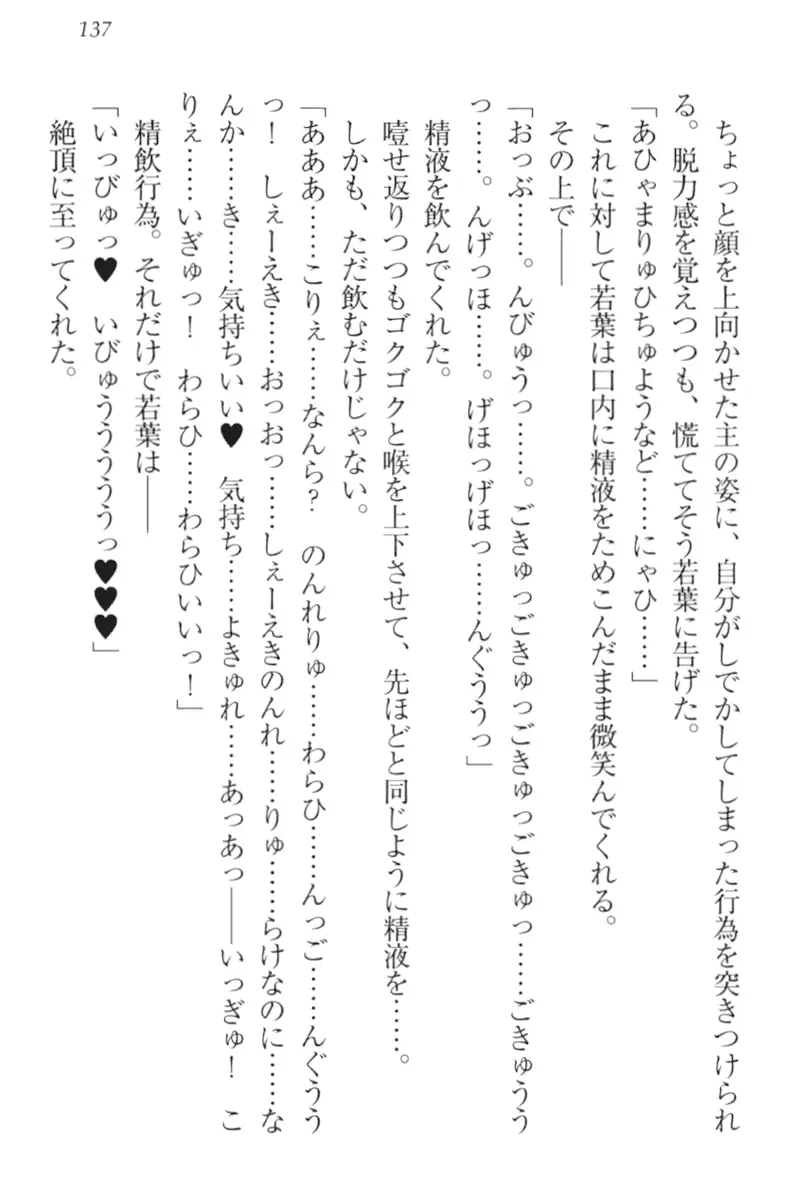 137
ちょっと顔を上向かせた主の姿に、自分がしでかしてしまった行為を突きつけられ
る。脱力感を覚えつつも、慌ててそう若葉に告げた。
「あひゃまりゅひちゅようなど……にゃひ……」
これに対して若葉は口内に精液をためこんだまま微笑んでくれる。
その上で――
「おっぶ……。んびゅうっ……。ごきゅっごきゅっごきゅっごきゅっ……ごきゅうう
っ……。んげっほ……。げほっげほっ……んぐううっ」
精液を飲んでくれた。
噎せ返りつつもゴクゴクと喉を上下させて、先ほどと同じように精液を……。
しかも、ただ飲むだけじゃない。
「あああ……こりぇ……なんら？　のんれりゅ……わらひ……んっご……んぐうう
っ！　しぇーえき……おっおっ……しぇーえきのんれ……りゅ……らけなのに……な
んか……き……気持ちいい♥　気持ち……よきゅれ……あっあっ――いっぎゅ！　こ
りぇ……いぎゅっ！　わらひ……わらひいいっ！」
精飲行為。それだけで若葉は――
「いっびゅっ♥　いびゅうううううっ♥♥♥」
絶頂に至ってくれた。